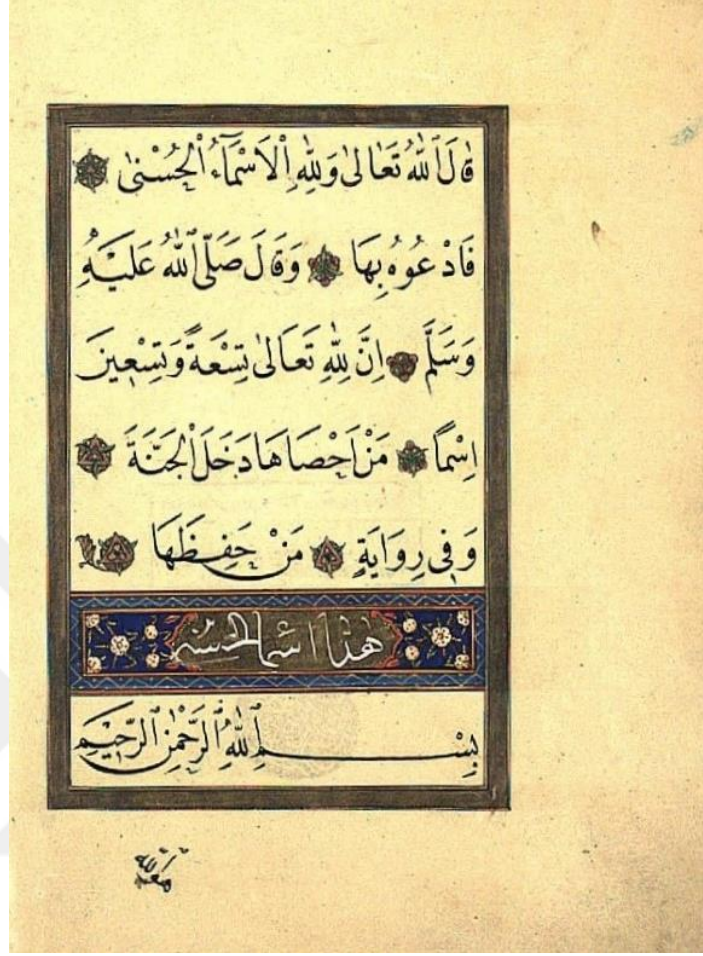 قَالَ اللّٰهُ تَعَالٰى وَلِلّٰهِ الْاَسْمَٓاءُ الْحُسْنٰى
فَادْعُوهُ بِهَا وَقَالَ صَلَّى اللّٰهُ عَلَيْهِ
وَسَلَّمَ اِنَّ لِلّٰهِ تَعَالٰى تِسْعَةً وَتِسْعِينَ
اِسْمًا مَنْ اَحْصَاهَا دَخَلَ الْجَنَّةَ
وَفِى رِوَايَةٍ مَنْ حَفِظَهَا
هذا اسما الحسنه
بِسْمِ اللّٰهِ الرَّحْمٰنِ الرَّحِيمِ